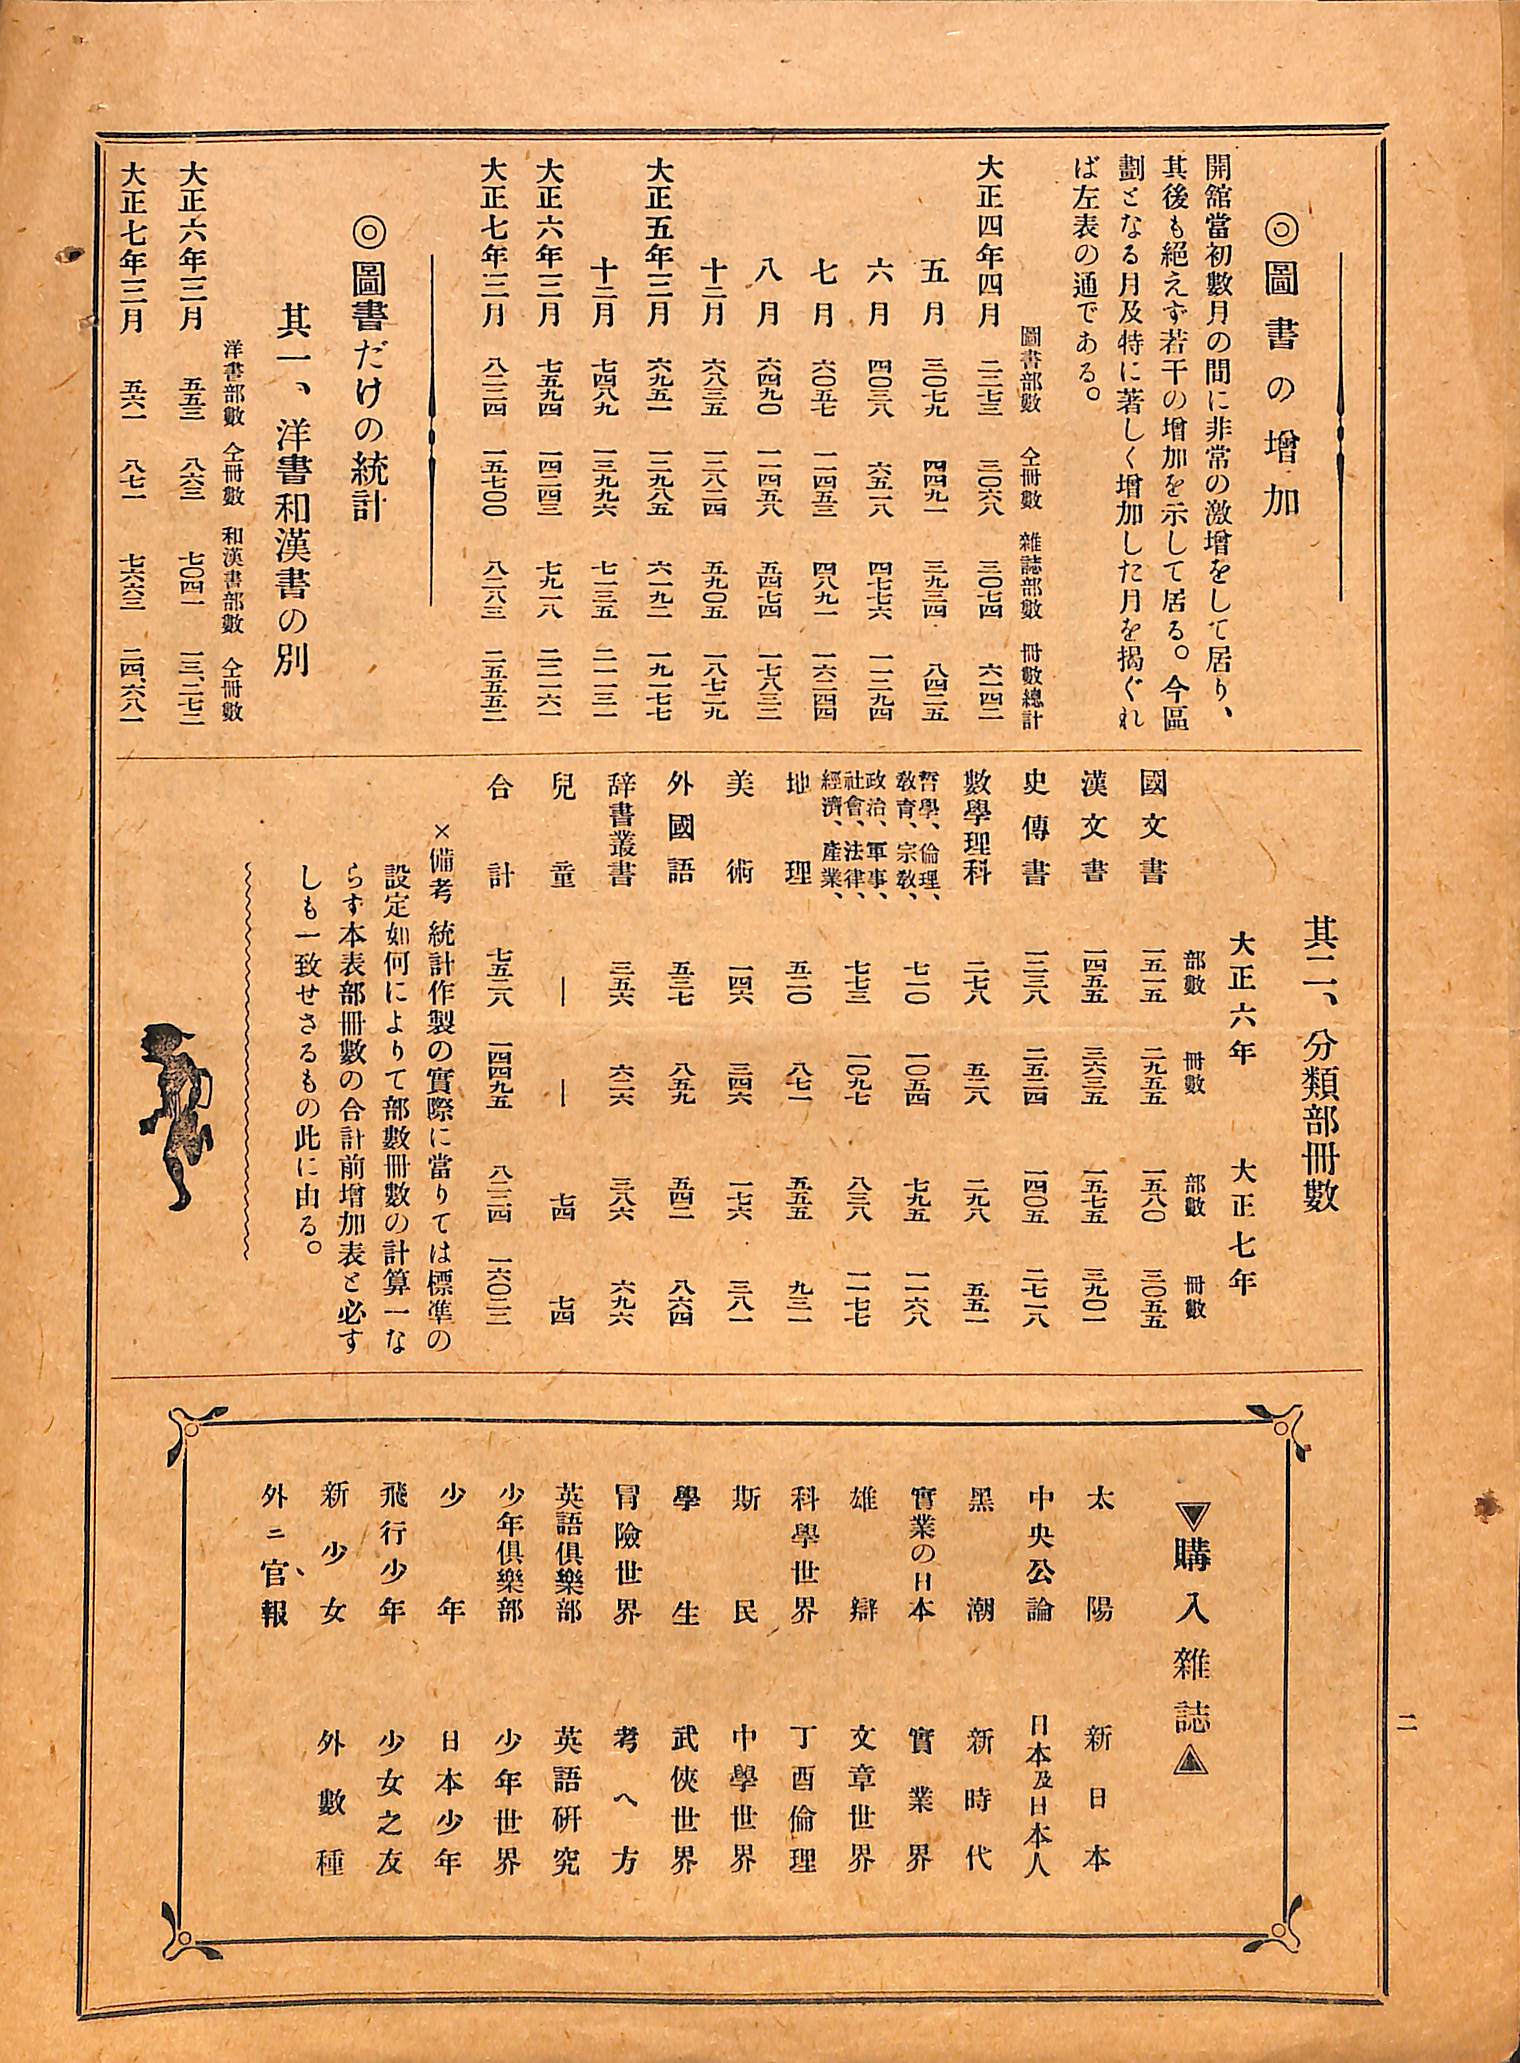 ◎圖書の增加
開舘當初數月の間に非常の激增をして居り、
其後も絕えず若干の增加を示して居る。今區
劃となる月及特に著しく增加した月を揭ぐれ
ば左表の通である。
圖書部數 仝冊數 雜誌部數 冊數總計
大正四年四月 二二七三 三〇六八 三〇七四 六一四二
五月 三〇七九 四四九一 三九三四 八四二五
六月 四〇三八 六五一八 四七七六 一一二九四
七月 六〇五七 一一四五三 四八九一 一六二四四
八月 六四九〇 一一四五八 五四七四 一七八三二
十二月 六八三五 一三八二四 五九〇五 一八七二九
大正五年三月 六九五一 一二九八五 六一九二 一九一七七
十二月 七四八九 一三九九六 七一三五 二一一三一
大正六年三月 七五九四 一四二四三 七九一八 二二一六一
大正七年三月 八二二四 一五七〇〇 八二八三 二五五五二
◎圖書だけの統計
其一、洋書和漢書の別
洋書部數 仝冊數 和漢書部數 仝冊數
大正六年三月 五五三 八六三 七〇四一 一三、二七二
大正七年三月 五六一 八七一 七六六三 二四、六八一
其二、分類部冊數
大正六年 大正七年
部數 冊數 部數 冊數
國文書 一五一五 二九五五 一五八〇 三〇五五
漢文書 一四五五 三六三五 一五七五 三九〇一
史傳書 一二三八 二五二四 一四〇五 二七一八
數學理科 二七八 五二八 二九八 五五一
哲學、倫理、
敎育、宗敎、 七一〇 一〇五四 七九五 一一六八
政治、軍事、
社會、法律、 七七三 一〇九七 八三八 一一七七
經濟、產業、
地理 五二〇 八七一 五五五 九三一
美術 一四六 三四六 一七六 三八一
外國語 五三七 八五九 五四二 八六四
辞書叢書 三五六 六二六 三八六 六九六
兒童 — — 七四 七四
合計 七五二八 一四四九五 八二二四 一六〇二三
×備考 統計作製の實際に當りては標準の
設定如何によりて部數冊數の計算一な
らず本表部冊數の合計前增加表と必す
しも一致せさるもの此に由る。
▼購入雜誌▲
太陽 新日本
中央公論 日本及日本人
黑潮 新時代
實業の日本 實業界
雄辯 文章世界
科學世界 丁酉倫理
斯民 中學世界
學生 武俠世界
冒險世界 考へ方
英語俱樂部 英語硏究
少年俱樂部 少年世界
少年 日本少年
飛行少年 少女之友
新少女 外數種
外ニ官報
二